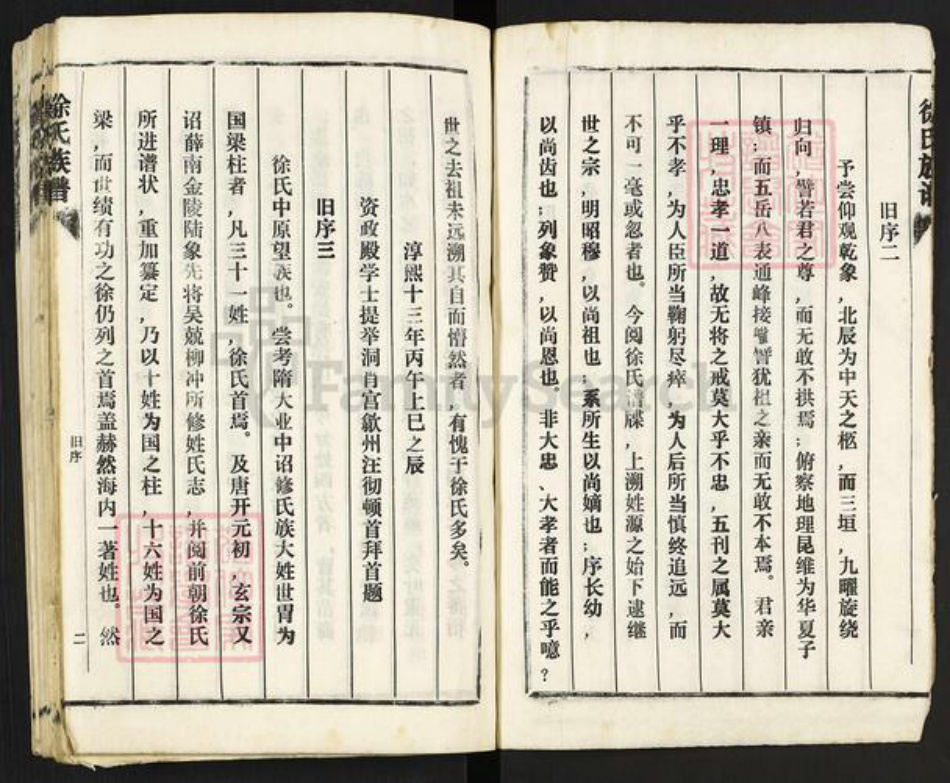 徐氏族谱
旧序二
予尝仰观乾象,北辰为中天之枢,而三垣,九曜旋绕
归向,譬若君之尊,而无敢不拱焉;俯察地理昆维为华夏子
镇;而五岳八表通峰接嶂譬犹祖之亲而无敢不本焉。君亲
一理,忠孝一道,故无将之戒莫大乎不忠,五刊之属莫大
乎不孝,为人臣所当鞠躬尽瘁,为人后所当慎终追远,而
不可一毫或忽者也。今阅徐氏谱牒,上溯姓源之始下逮继
世之宗,明昭穆,以尚祖也;系所生以尚嫡也;序长幼,
以尚齿也;列象赞,以尚恩也。非大忠、大孝者而能之乎噫?
世之去祖未远溯其自而懵然者,有愧于徐氏多矣。
淳熙十三年丙午上巳之辰
资政殿学士提举洞肖宫歙州汪彻顿首拜首题
旧序三
徐氏中原望族也。尝考隋大业中诏修氏族大姓世胄为
国梁柱者,凡三十一姓,徐氏首焉。及唐开元初,玄宗又
诏薛南金陵陆象先将吴兢柳冲所修姓氏志,并阅前朝徐氏
所进谱状,重加纂定,乃以十姓为国之柱,十六姓为国之
梁,而世绩有功之徐仍列之首焉盖赫然海内一著姓也。然
旧序
二
徐氏族谱
FamilySearch